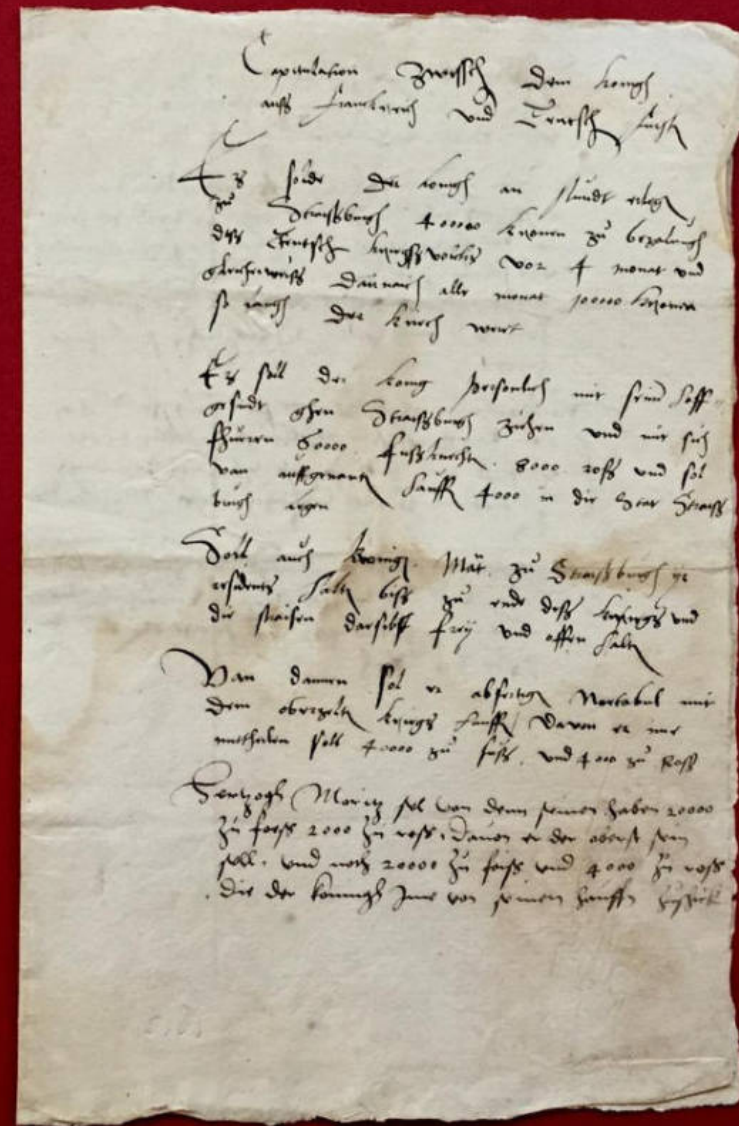 Capitulation zwissch dem konigh
auß Franckreich und Teutsch furst
Es solde der konigh an stundt erleg
zu Straßburgh 400000 kronen zu bezalungh
deß Teutsch kriegßvolcks vor 4 monat und
gleicherweiß darnach alle monat 10000 kronen
so langh der kriech wert
Es sall der konig personlich mit seim hoff
gesindt ghen Straßburgh ziehen und mit sich
fhueren 60000 fußknecht 8000 roß und sol
van auffgenant hauff 4000 in die Stat Straß
burgh legen
Soll auch konig. Mat. zu Straßburgh ir
residents halt biß zu ende deß kriegs und
die strassen darselbst frey und offen halt
Van dannen sol er abfertig mit
dem oberzelt kriegs hauff, davon er ime
mitthelen soll 40000 zu fuß, und 4000 zu Roß
Hertzogh Moritz sol von denn seinen haben 20000
zu foeß 2000 zu roß, davon er der oberst sein
soll. und noch 20000 zu foiß und 4000 zu roß
die der konnigh Ime von seinen hauffen zuschickt